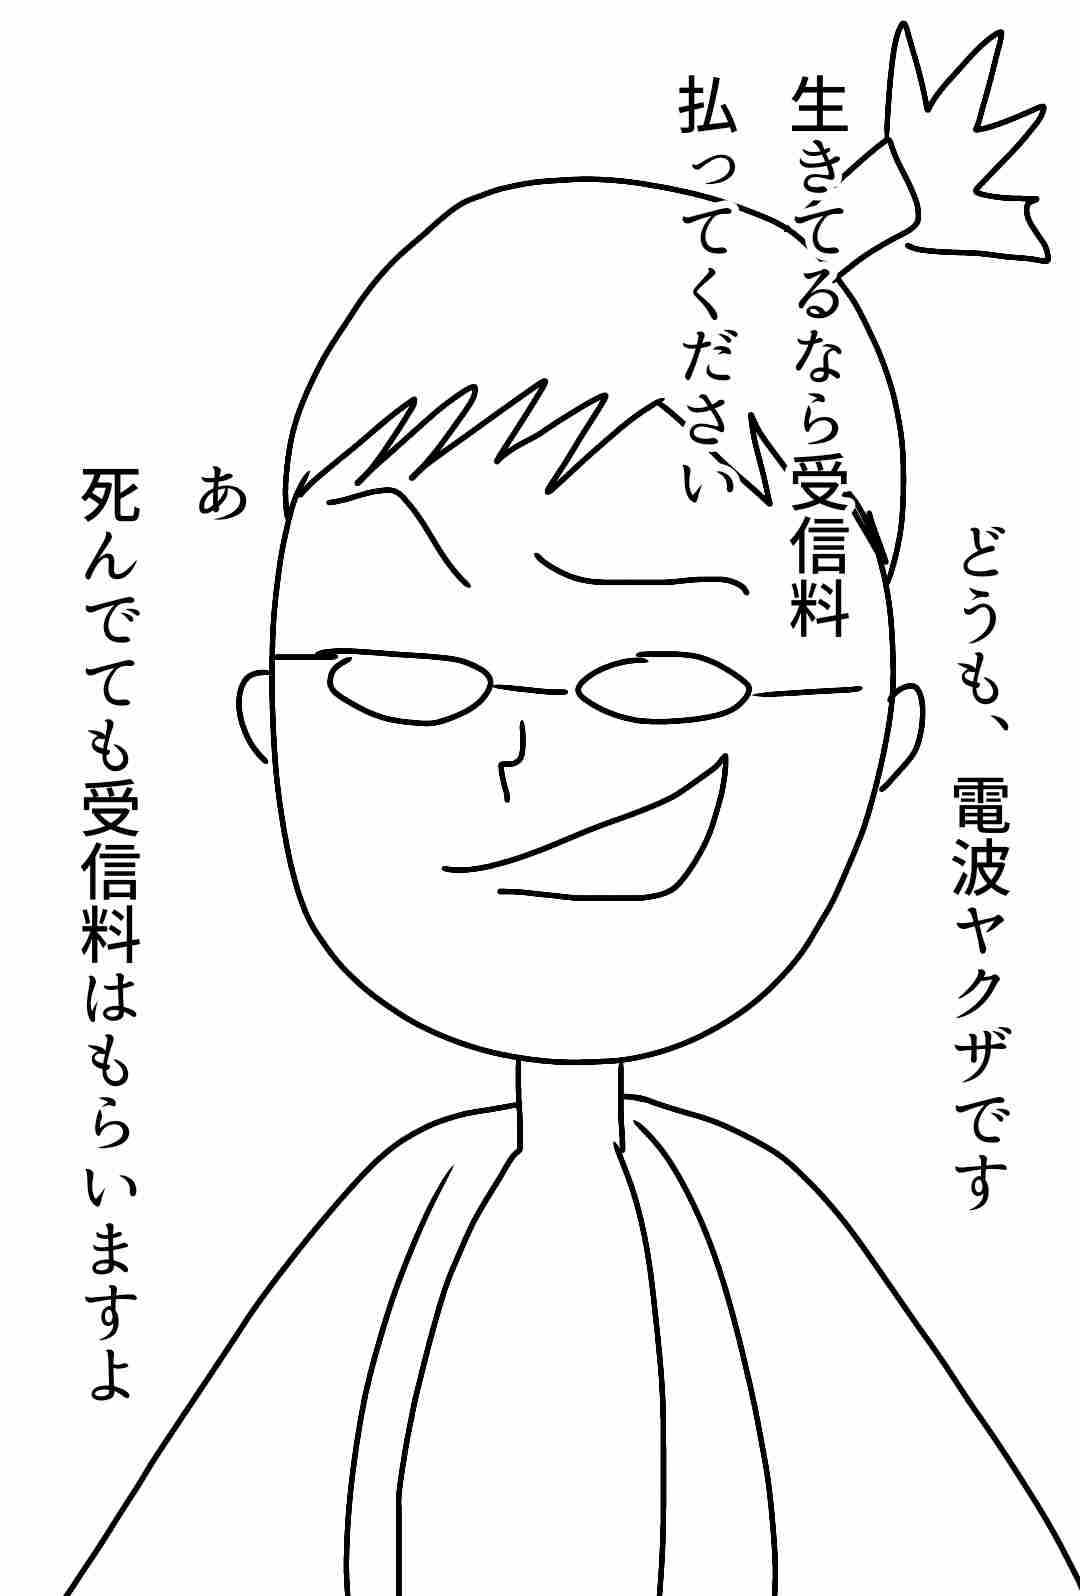 どうも、電波ヤクザです
生きてるなら受信料
払ってください
あ
死んでても受信料はもらいますよ